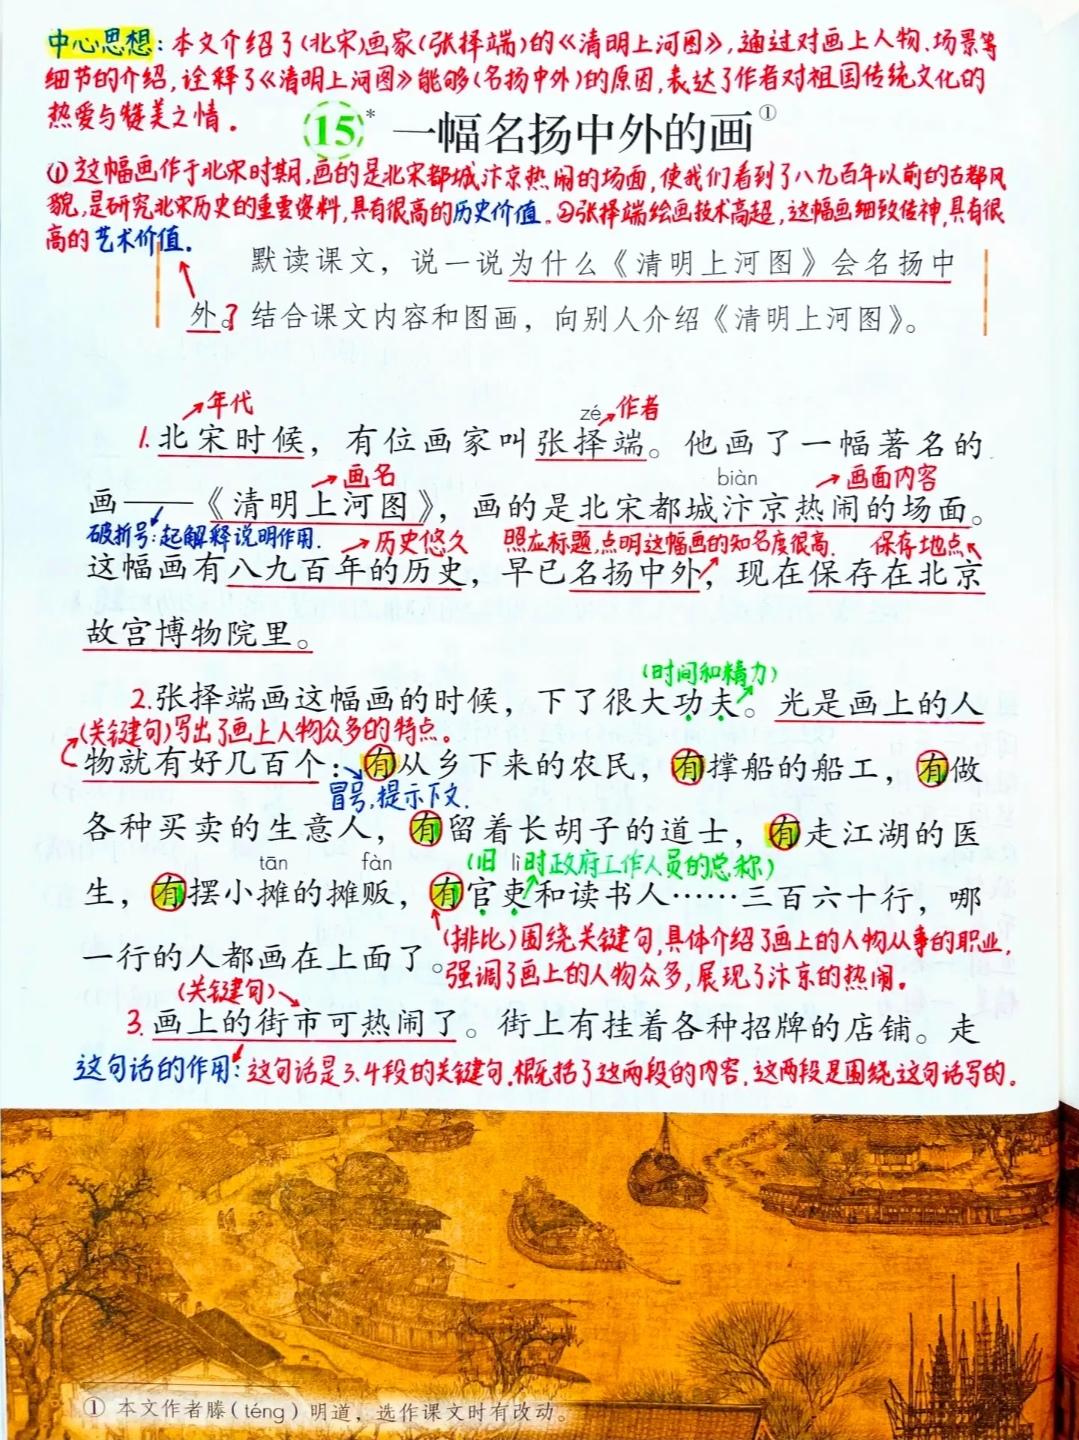 中心思想:本文介绍了(北宋)画家(张择端)的《清明上河图》,通过对画上人物、场景等
细节的介绍,诠释了《清明上河图》能够(名扬中外)的原因,表达了作者对祖国传统文化的
热爱与赞美之情。
15* 一幅名扬中外的画①
①这幅画作于北宋时期,画的是北宋都城汴京热闹的场面,使我们看到了八九百年以前的古都风
貌,是研究北宋历史的重要资料,具有很高的历史价值。②张择端绘画技术高超,这幅画细致传神,具有很
高的艺术价值。
默读课文，说一说为什么《清明上河图》会名扬中
外。?结合课文内容和图画，向别人介绍《清明上河图》。
年代
zé 作者
1.北宋时候，有位画家叫张择端。他画了一幅著名的
画名 biàn 画面内容
画——《清明上河图》，画的是北宋都城汴京热闹的场面。
破折号:起解释说明作用. 历史悠久 照应标题,点明这幅画的知名度很高. 保存地点
这幅画有八九百年的历史，早已名扬中外，现在保存在北京
故宫博物院里。
(时间和精力)
2.张择端画这幅画的时候，下了很大功夫。光是画上的人
(关键句)写出了画上人物众多的特点。
物就有好几百个：有从乡下来的农民，有撑船的船工，有做
冒号,提示下文.
各种买卖的生意人，有留着长胡子的道士，有走江湖的医
tān fàn (旧 lì 时政府工作人员的总称)
生，有摆小摊的摊贩，有官吏和读书人……三百六十行，哪
(排比)围绕关键句,具体介绍了画上的人物从事的职业,
一行的人都画在上面了。
强调了画上的人物众多,展现了汴京的热闹。
(关键句)
3.画上的街市可热闹了。街上有挂着各种招牌的店铺。走
这句话的作用:这句话是3.4段的关键句.概括了这两段的内容,这两段是围绕这句话写的。
① 本文作者滕（téng）明道，选作课文时有改动。